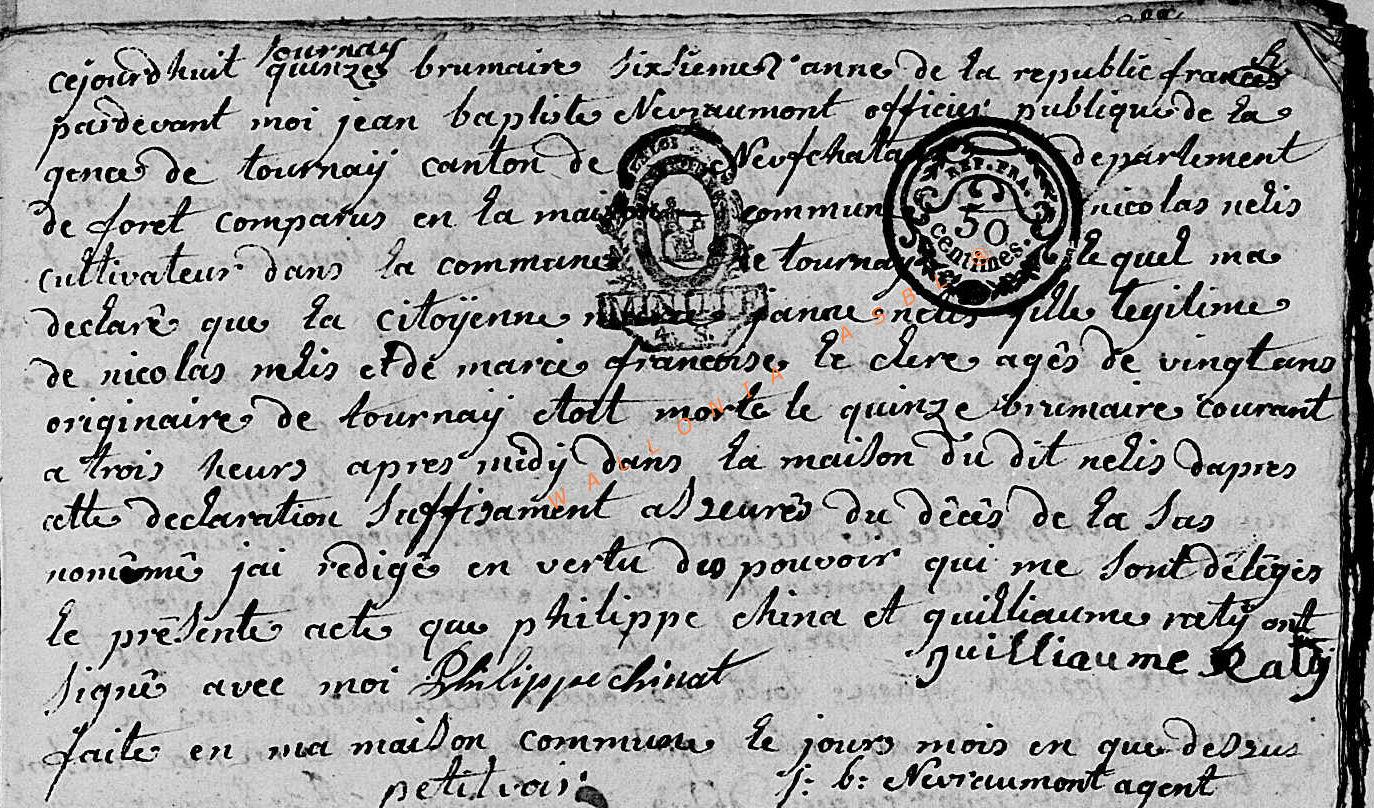 tournay
cejourdhuit quinze brumaire sixsieme anne de la republic frances
pardevant moi jean baptiste Nevraumont officier publique de la
gence de tournay canton de Neufchata departement
de foret comparus en la maison commun nicolas nelis
cultivateur dans la commune de tournay le quel ma
declaré que la citoÿenne janne nelis fille legitime
de nicolas nelis et de marie francoise le clere agês de vingt ans
originaire de tournay etoit morte le quinze brumaire courant
a trois heurs apres midy dans la maison du dit nelis dapres
cette declaration suffisament asseurês du dêcês de la sus
nomêmê jai redigê en vertu des pouvoir qui me sont dêlêgês
le prêsente acte que philippe china et guilliaume raty ont
signê avec moi Philippe chinat guilliaume Raty
faite en ma maison commune le jours mois en que dessus
petitvoir j: b: Nevraumont agent
REP. FRA.
50
centimes.
WALLONIA ASBL ©